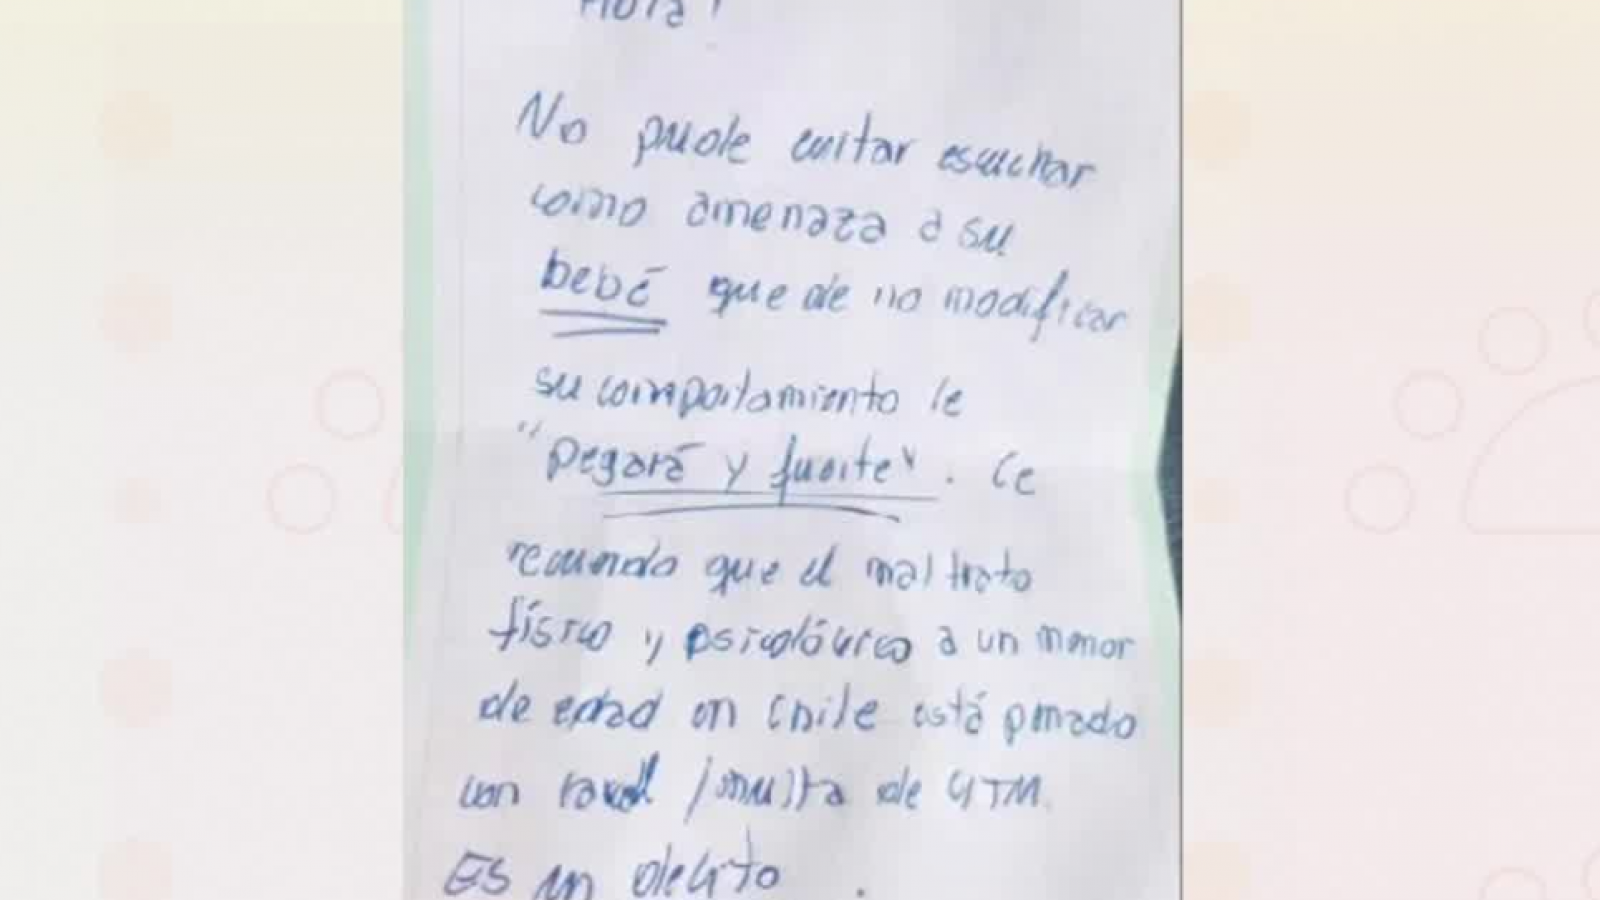 Hola!
No pude evitar escuchar
como amenaza a su
bebé que de no modificar
su comportamiento le
"pegará y fuerte". Le
recuerdo que el maltrato
físico y psicológico a un menor
de edad en Chile está penado
con carcel / multa de UTM.
Es un delito.